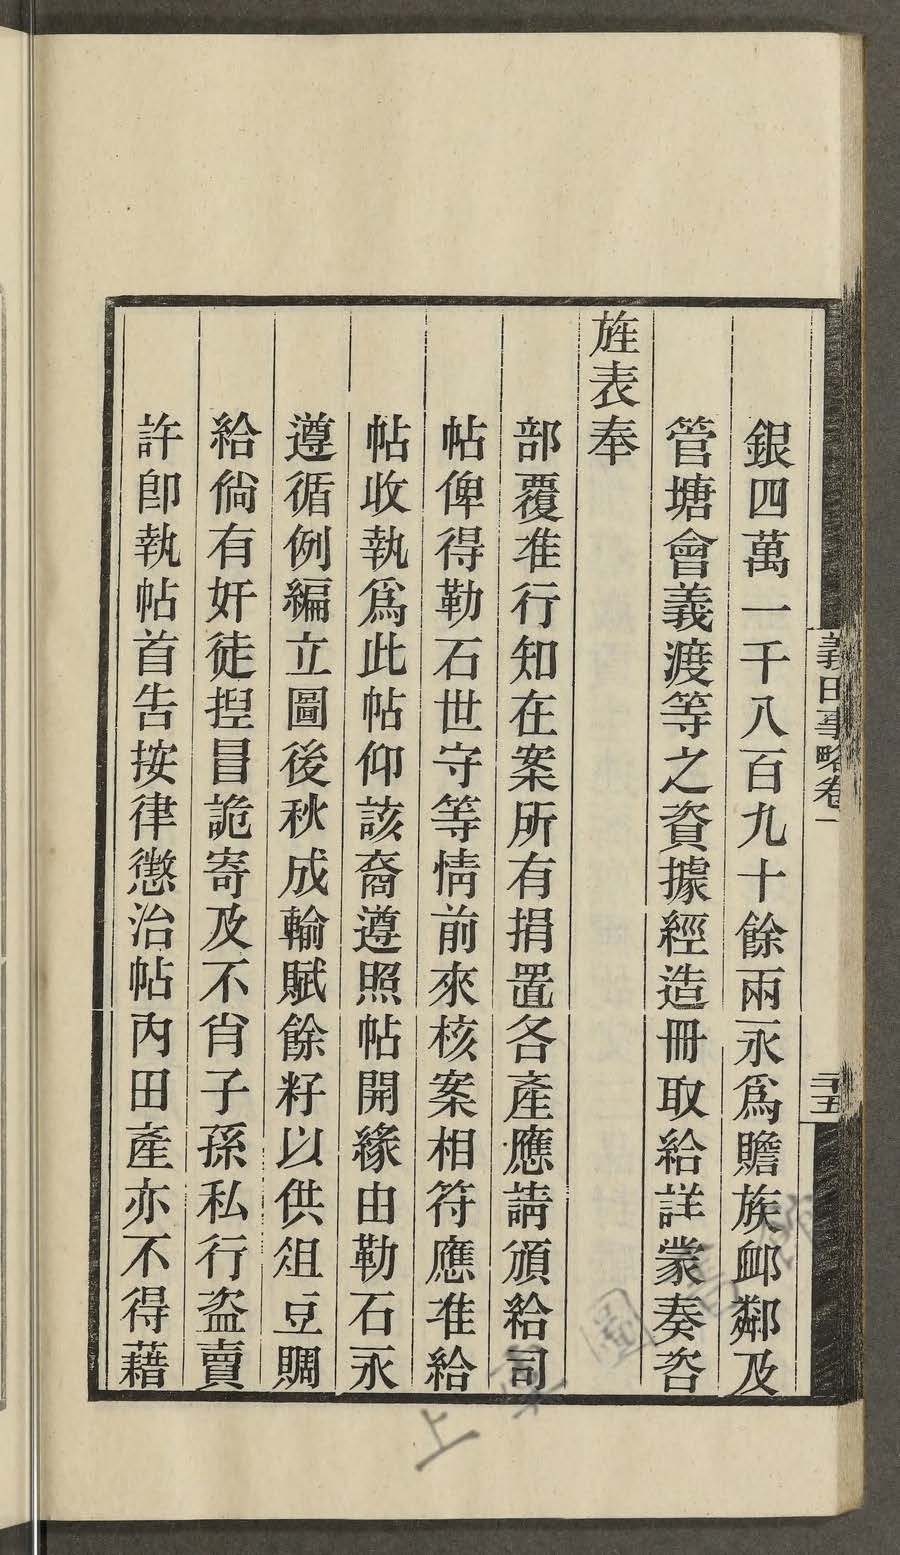 銀四萬一千八百九十餘兩永爲贍族卹鄰及
管塘會義渡等之資據經造冊取給詳蒙奏咨
旌表奉
部覆准行知在案所有捐置各產應請頒給司
帖俾得勒石世守等情前來核案相符應准給
帖收執爲此帖仰該裔遵照帖開緣由勒石永
遵循例編立圖後秋成輸賦餘籽以供俎豆賙
給倘有奸徒揑冒詭寄及不肖子孫私行盜賣
許卽執帖首告按律懲治帖內田產亦不得藉
義田事略卷一
二十五
上 圖書館